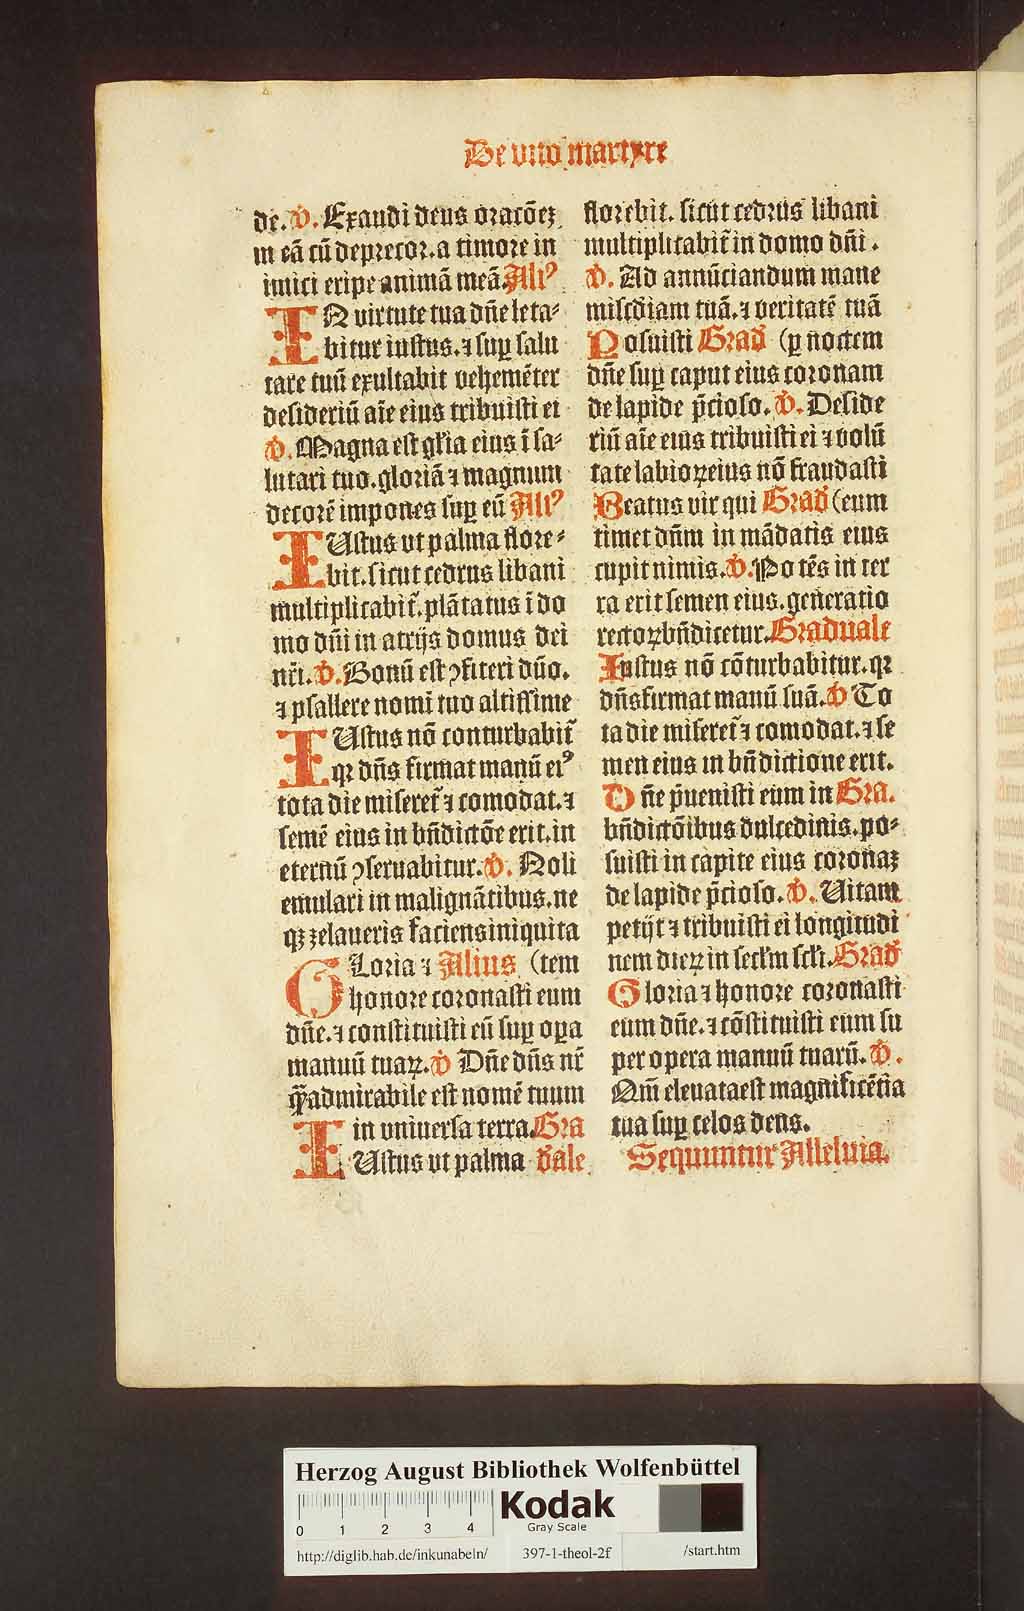 De vno martyre
de. v̇. Exaudi deus oracōeꝫ
m eā cū deprecor. a timore in
imici eripe animā meā. Aliꝰ
IN virtute tua dn̄e leta⸗
bitur iustus. ⁊ suꝑ salu
tare tuū exultabit vehemēter
desideriū aīe eius tribuisti ei
v̇. Magna est gl̓ia eius ī sa⸗
lutari tuo. gloriā ⁊ magnum
decorē impones suꝑ eū Aliꝰ
IUstus vt palma flore⸗
bit. sicut cedrus libani
multiplicabit̄. plātatus ī do
mo dn̄i in atrijs domus dei
nr̄i. v̇. Bonū est ꝯfiteri dn̄o.
⁊ psallere nomī tuo altissime
IUstus nō conturbabit̄
qꝛ dn̄s firmat manū eiꝰ
tota die miseret̄ ⁊ comodat. ⁊
semē eius in bn̄dictōe erit. in
eternū ꝯseruabitur. v̇. Noli
emulari in malignātibus. ne
qꝫ zelaueris faciens iniquita
GLoria ⁊ Alius (tem
honore coronasti eum
dn̄e. ⁊ constituisti eū suꝑ oꝑa
manuū tuaꝝ. v̇ Dn̄e dn̄s nr̄
q̄ꝫ admirabile est nomē tuum
in vniuersa terra. Gra
IUstus vt palma d̓ale
florebit. sicut cedrus libani
multiplicabit̄ in domo dn̄i.
v̇. Ad annūciandum mane
mis̄cdiam tuā. ⁊ veritatē tuā
Posuisti Grad̓ (ꝑ noctem
dn̄e suꝑ caput eius coronam
de lapide p̄cioso. v̇. Deside
riū aīe eius tribuisti ei ⁊ volū
tate labioꝝ eius nō fraudasti
Beatus vir qui Grad̓ (eum
timet dn̄m in mādatis eius
cupit nimis. v̇. Po tēs in ter
ra erit semen eius. generatio
rectoꝝ bn̄dicetur. Graduale
Iustus nō cōturbabitur. qꝛ
dn̄s firmat manū suā. v̇ To
ta die miseret̄ ⁊ comodat. ⁊ se
men eius in bn̄dictione erit.
Dn̄e p̄uenisti eum in Gra.
bn̄dictōibus dulcedinis. po⸗
suisti in capite eius coronaꝫ
de lapide p̄cioso. v̇. Uitam
petijt ⁊ tribuisti ei longitudi
nem dieꝝ in secl̄m scl̄i. Grad̓
Gloria ⁊ honore coronasti
eum dn̄e. ⁊ cōstituisti eum su
per opera manuū tuarū. v̇.
Qm̄ eleuata est magnificētia
tua suꝑ celos deus.
Sequuntur Alleluia.
Herzog August Bibliothek Wolfenbüttel
0 1 2 3 4
Kodak
Gray Scale
http://diglib.hab.de/inkunabeln/ 397-1-theol-2f /start.htm